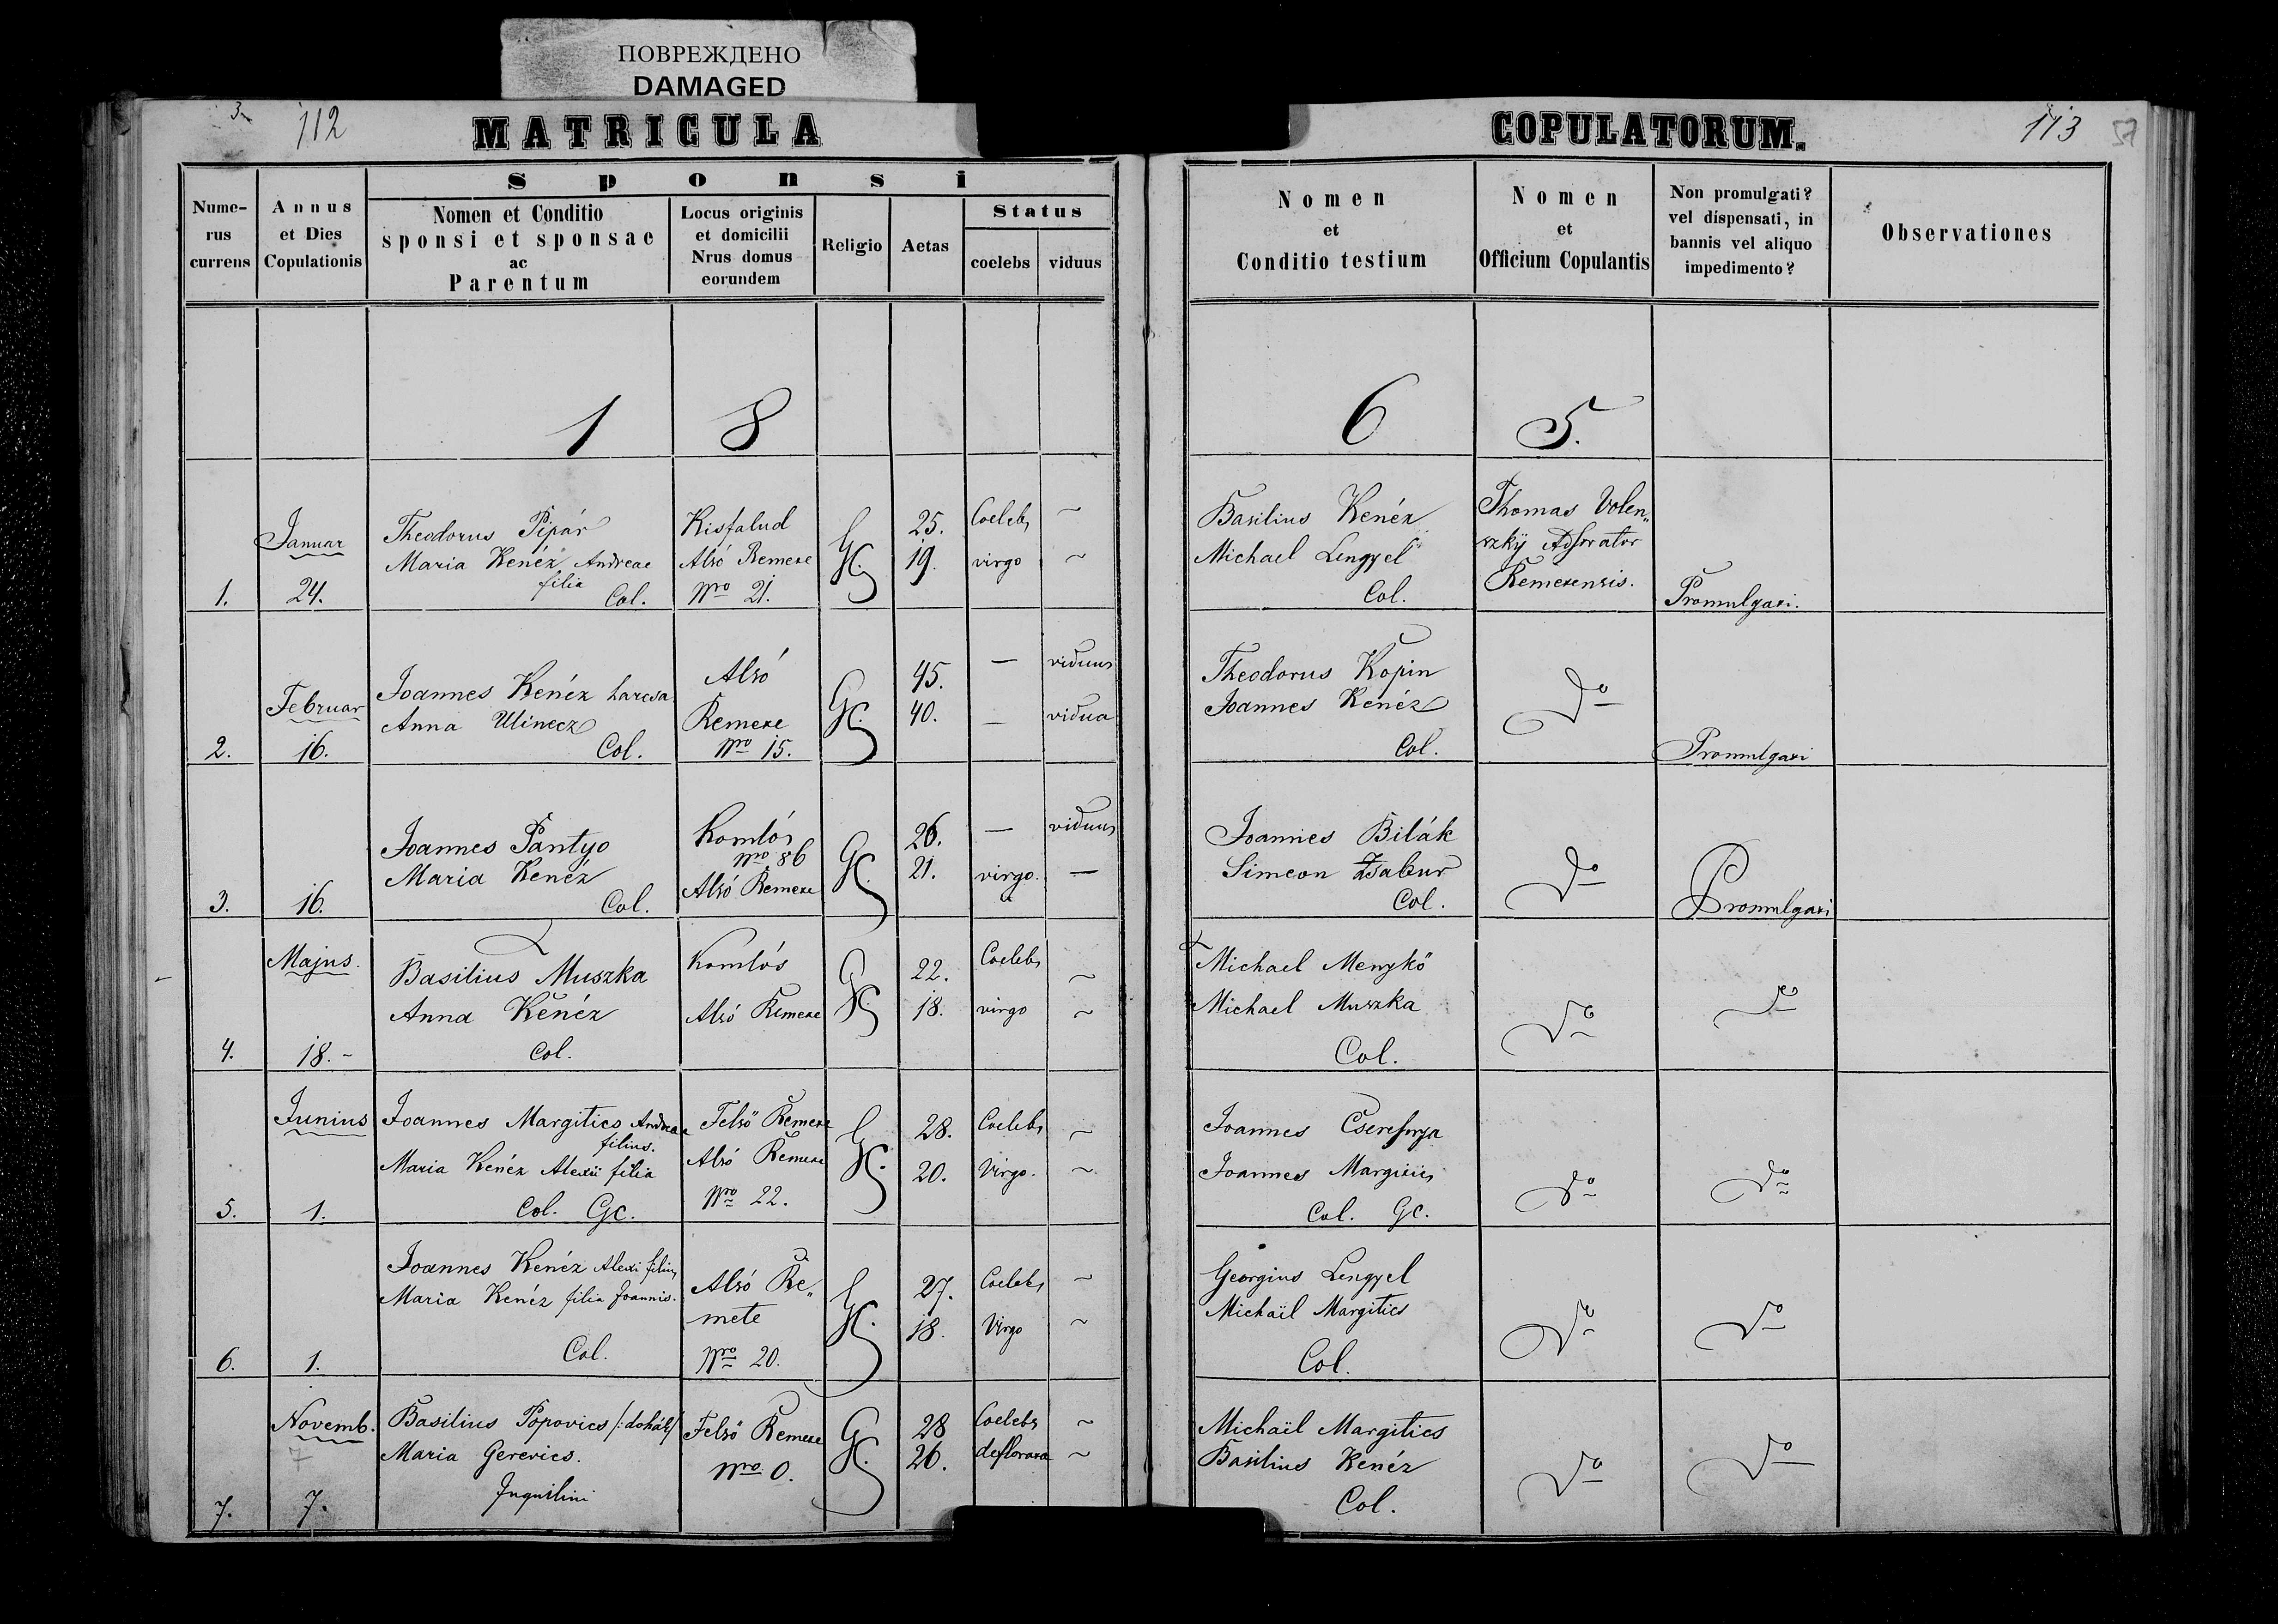 ПОВРЕЖДЕНО
DAMAGED
3
112
MATRICULA
Sponsi
Nume-
rus
currens
Annus
et Dies
Copulationis
Nomen et Conditio
sponsi et sponsae
ac
Parentum
Locus originis
et domicilii
Nrus domus
eorundem
Religio
Aetas
Status
coelebs
viduus
1 8
Januar
24.
1.
Theodorus Pipár
Maria Kenéz Andreae
filia
Col.
Kisfalud
Alsó Remete
Nro 21.
Gc.
25.
19.
Coelebs
virgo
~
~
Februar
16.
2.
Joannes Kenéz harcsa
Anna Ulinecz
Col.
Alsó
Remete
Nro 15.
Gc.
45.
40.
—
—
viduus
vidua
3.
16.
Joannes Pantyo
Maria Kenéz
Col.
Komlós
Nro 86
Alsó Remete
Gc.
26.
21.
—
virgo.
viduus
—
Majus.
18. -
4.
Basilius Muszka
Anna Kenéz
Col.
Komlós
Alsó Remete
Gc.
22.
18.
Coelebs
virgo
~
~
Junius
1.
5.
Joannes Margitics Andreae
filius.
Maria Kenéz Alexii filia
Col. Gc.
Felső Remete
Alsó Remete
Nro 22.
Gc.
28.
20.
Coelebs
Virgo.
~
~
6.
1.
Joannes Kenéz Alexi filius
Maria Kenéz filia Joannis.
Col.
Alsó Re„
mete
Nro 20.
Gc.
27.
18.
Coelebs
Virgo
~
~
Novemb.
7
7.
7.
Basilius Popovics /: doháts/
Maria Gerevics.
Inquilini
Felső Remete
Nro 0.
Gc.
28
26.
Coelebs
deflorata
~
~
COPULATORUM.
113
57
Nomen
et
Conditio testium
Nomen
et
Officium Copulantis
Non promulgati?
vel dispensati, in
bannis vel aliquo
impedimento?
Observationes
6 5.
Basilius Kenéz
Michael Lengyel
Col.
Thomas Volen„
szky Admrator
Remetensis.
Promulgati.
Theodorus Kopin
Joannes Kenéz
Col.
Do
Promulgati
Joannes Bilák
Simeon Zsabur
Col.
Do
Promulgati
Michael Menykő
Michael Muszka
Col.
Do
Do
Joannes
Joannes Margitics
Col. Gc.
Do
Do
Georgius Lengyel
Michaïl Margitics
Col.
Do
Do
Michaïl Margitics
Basilius Kenéz
Col.
Do
Do